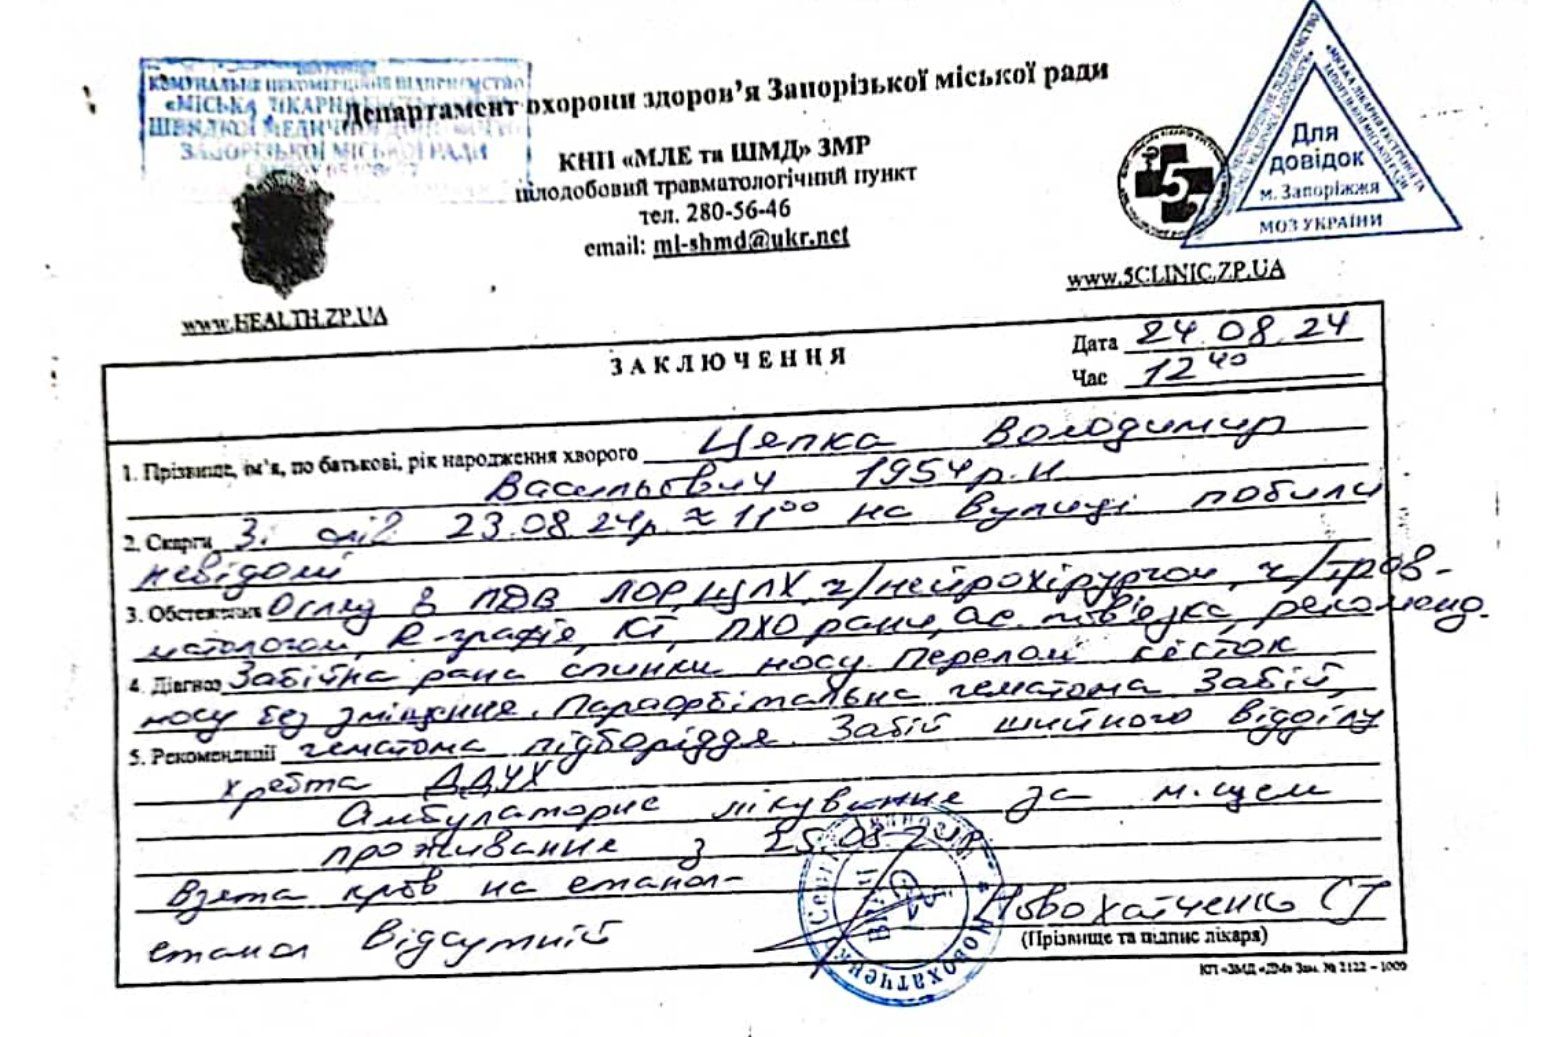 КОМУНАЛЬНЕ НЕКОМЕРЦІЙНЕ ПІДПРИЄМСТВО
«МІСЬКА ЛІКАРНЯ
ШВИДКОЇ МЕДИЧНОЇ
ЗАПОРІЗЬКОЇ МІСЬКОЇ РАДИ
Департамент охорони здоров’я Запорізької міської ради
КНП «МЛЕ та ШМД» ЗМР
цілодобовий травматологічний пункт
тел. 280-56-46
email: ml-shmd@ukr.net
5
Для
довідок
м. Запоріжжя
МОЗ УКРАЇНИ
www.HEALTH.ZP.UA
www.5CLINIC.ZP.UA
ЗАКЛЮЧЕННЯ
Дата 24.08.24
Час 12 40
1. Прізвище, ім’я, по батькові, рік народження хворого Цяпка Володимир
Васильович 1954р.н.
2. Скарги Зі слів 23.08.24р. ≈ 11 00 на вулиці побили
невідомі
3. Обстеження Огляд в ЛОР, ЩЛХ, ч/нейрохірургом, ч/трав-
матологом, R-графія, КТ, ПХО рани, ас. пов'язка, рекоменд.
4. Діагноз Забійна рана спинки носу. Перелом кісток
носу без зміщення. Параорбітальна гематома. Забій,
5. Рекомендації гематома підборіддя. Забій шийного відділу
хребта
Амбулаторне лікування за місцем
проживання з 25.08.24р
Взята кров на етанол-
етанол Відсутній
Новохатченко
(Прізвище та підпис лікаря)
КП «ЗМД «ДМ» Зам. № 2122 – 1000